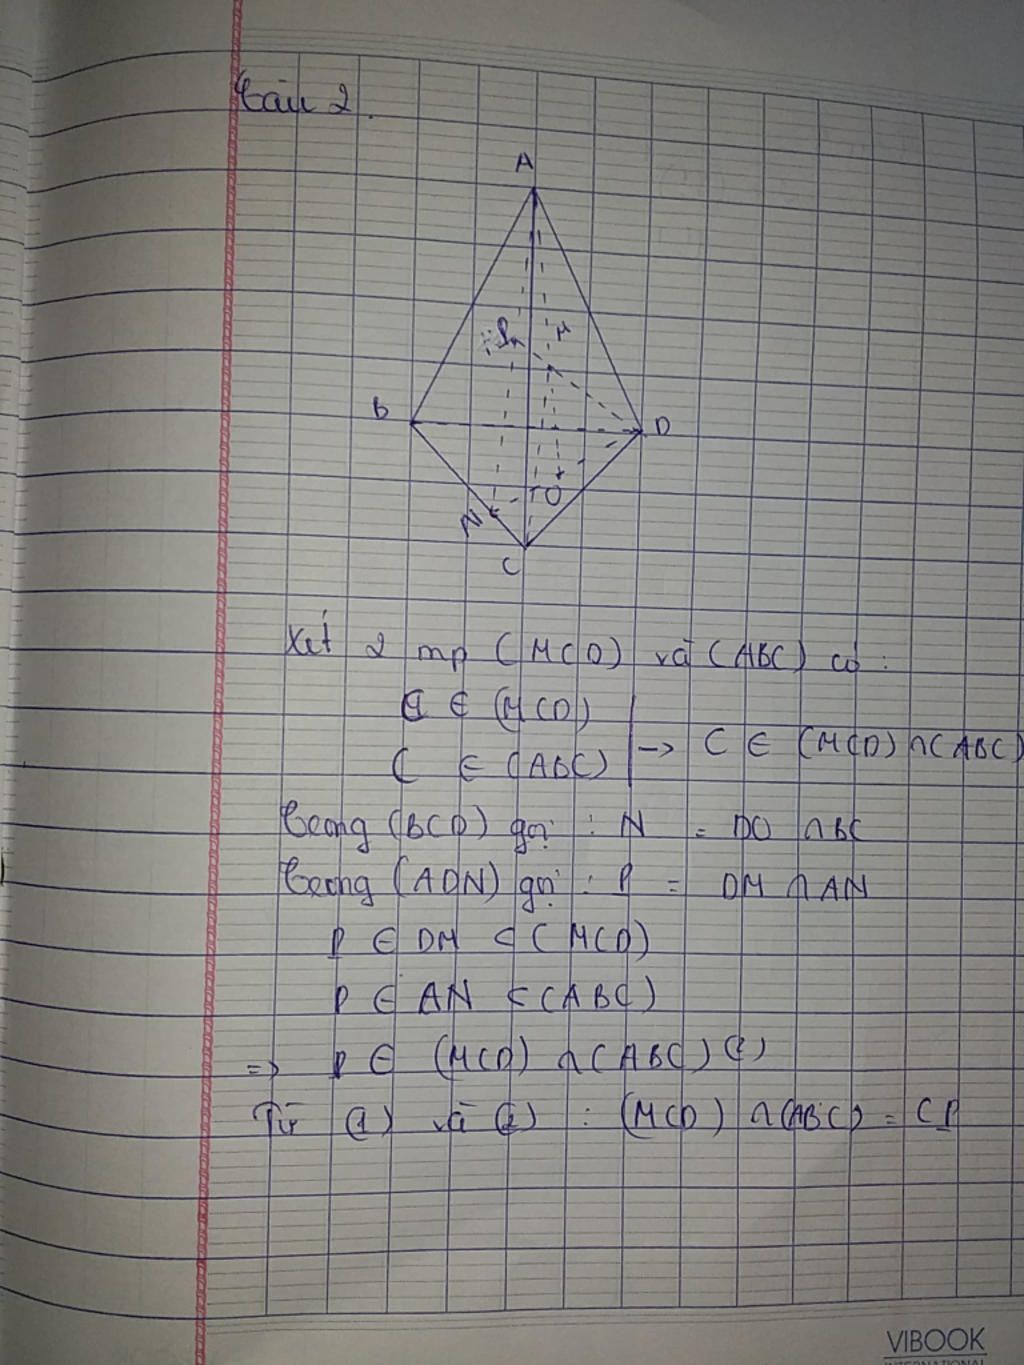 Câu 2.
A
P
M
B
D
O
N
C
Xét 2 mp (MCD) và (ABC) có:
C ∈ (MCD)
C ∈ (ABC) | -> C ∈ (MCD) ∩ (ABC)
Trong (BCD) gọi : N = DO ∩ BC
Trong (ADN) gọi : P = DM ∩ AN
P ∈ DM ⊂ (MCD)
P ∈ AN ⊂ (ABC)
=> P ∈ (MCD) ∩ (ABC) (2)
Từ (1) và (2) : (MCD) ∩ (ABC) = CP
VIBOOK
INTERNATIONAL